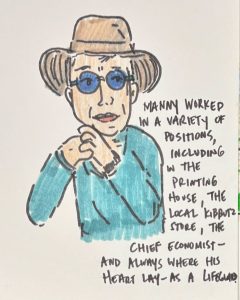 MANNY WORKED
IN A VARIETY OF
POSITIONS,
INCLUDING
IN THE
PRINTING
HOUSE, THE
LOCAL KIBBUTZ
STORE, THE
CHIEF ECONOMIST -
AND ALWAYS WHERE HIS
HEART LAY - AS A LIFEGUARD